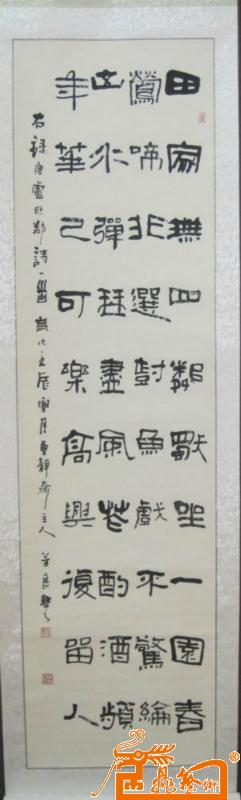 田家無四鄰獨坐一園春
鶯啼非選樹魚戲不驚綸
山水彈琴盡風花酌酒頻
年華已可樂高興復留人
右録唐盧照鄰詩一首歲次辰月靜齋主人